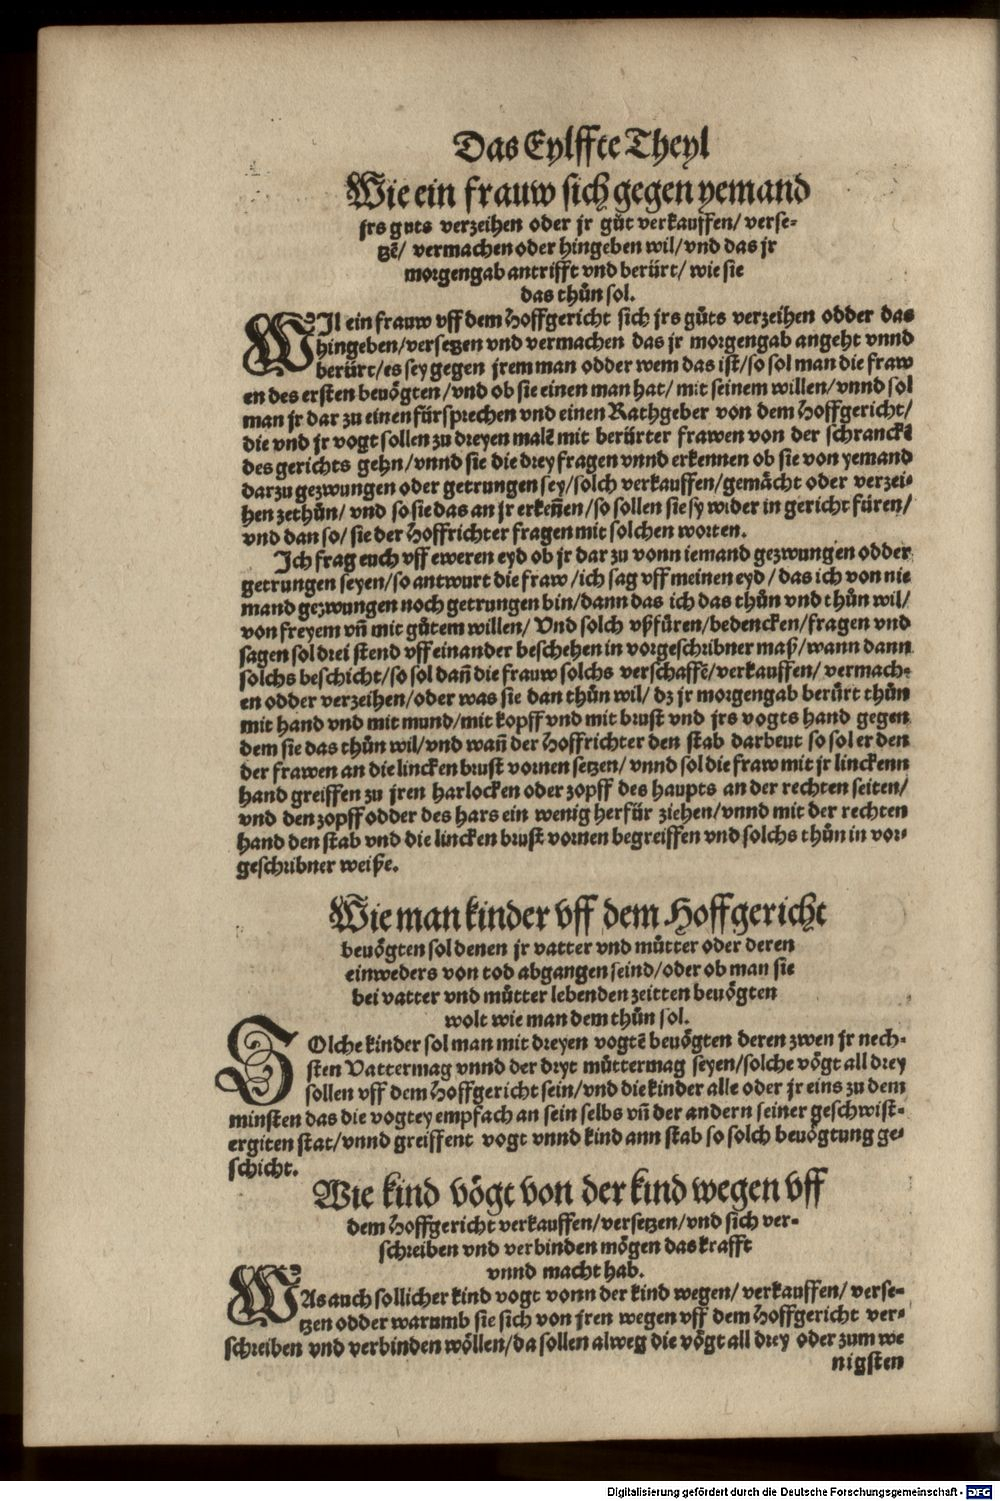 Das Eylffte Theyl
Wie ein frauw sich gegen yemand
jrs guts verzeihen oder jr gůt verkauffen/ verse-
tzē/ vermachen oder hingeben wil/ vnd das jr
morgengab antrifft vnd berürt/ wie sie
das thůn sol.
WIl ein frauw vff dem Hoffgericht sich jrs gůts verzeihen odder das
hingeben/versetzen vnd vermachen das jr morgengab angeht vnnd
berürt/es sey gegen jrem man odder wem das ist/so sol man die fraw
en des ersten bevögten/vnd ob sie einen man hat/ mit seinem willen/vnnd sol
man jr dar zu einen fürsprechen vnd einen Rathgeber von dem Hoffgericht/
die vnd jr vogt sollen zu dreyen malē mit berürter frawen von der schranckē
des gerichts gehn/vnnd sie die drey fragen vnnd erkennen ob sie von yemand
darzu gezwungen oder getrungen sey/solch verkauffen/gemächt oder verzei-
hen zethůn/ vnd so sie das an jr erkeñen/so sollen sie sy wider in gericht füren/
vnd dan so/ sie der Hoffrichter fragen mit solchen worten.
Ich frag euch vff eweren eyd ob jr dar zu vonn iemand gezwungen odder
getrungen seyen/so antwurt die fraw/ich sag vff meinen eyd/ das ich von nie
mand gezwungen noch getrungen bin/dann das ich das thůn vnd thůn wil/
von freyem vñ mit gůtem willen/ Vnd solch vßfüren/bedencken/fragen vnd
sagen sol drei stend vff einander beschehen in vorgeschribner maß/wann dann
solchs beschicht/so sol dañ die frauw solchs verschaffē/verkauffen/ vermach-
en odder verzeihen/oder was sie dan thůn wil/ dz jr morgengab berürt thůn
mit hand vnd mit mund/mit kopff vnd mit brust vnd jrs vogts hand gegen
dem sie das thůn wil/vnd wañ der Hoffrichter den stab darbeut so sol er den
der frawen an die lincken brust vornen setzen/ vnnd sol die fraw mit jr linckenn
hand greiffen zu jren harlocken oder zopff des haupts an der rechten seiten/
vnd den zopff odder des hars ein wenig herfür ziehen/vnnd mit der rechten
hand den stab vnd die lincken brust vornen begreiffen vnd solchs thůn in vor-
geschribner weiße.
Wie man kinder vff dem Hoffgericht
bevögten sol denen jr vatter vnd můtter oder deren
einweders von tod abgangen seind/oder ob man sie
bei vatter vnd můtter lebenden zeitten bevögten
wolt wie man dem thůn sol.
SOlche kinder sol man mit dreyen vogtē bevögten deren zwen jr nech-
sten Vattermag vnnd der dryt můttermag seyen/solche vögt all drey
sollen vff dem Hoffgericht sein/vnd die kinder alle oder jr eins zu dem
minsten das die vogtey empfach an sein selbs vñ der andern seiner geschwist-
ergiten stat/vnnd greiffent vogt vnnd kind ann stab so solch bevögtung ge-
schicht.
Wie kind vögt von der kind wegen vff
dem Hoffgericht verkauffen/versetzen/vnd sich ver-
schreiben vnd verbinden mögen das krafft
vnnd macht hab.
WAs auch sollicher kind vogt vonn der kind wegen/ verkauffen/ verse-
tzen odder warumb sie sich von jren wegen vff dem Hoffgericht ver-
schreiben vnd verbinden wöllen/da sollen alweg die vögt all drey oder zum we
nigsten
Digitalisierung gefördert durch die Deutsche Forschungsgemeinschaft - DFG